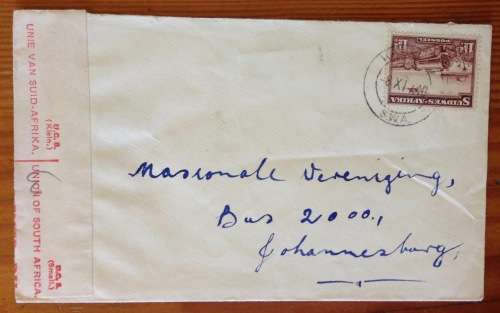 UNIE VAN SUID-AFRIKA.
UNION OF SOUTH AFRICA.
U.C.S.
(Klein.)
U.C.S.
(Small.)
SUIDWES-AFRIKA
POSSEËL
1½d
XI
SWA
Nasionale Vereniging,
Bus 2000,
Johannesburg,